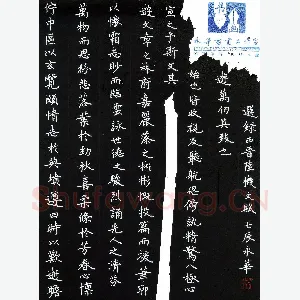 佇中區以玄覽頤情志於典墳遵四時以歎逝瞻
萬物而思紛悲落葉於勁秋喜柔條於芳春心懍
以懷霜志眇而臨雲詠世德之駿烈誦先人之清芬
遊文章之林府嘉麗藻之彬彬慨投篇而援筆
宣之乎斯文其
始也皆收視反聽耽思傍訊精騖八極心
遊萬仞其致也
選錄西晉陸機文賦 永華
Shufawang.CN